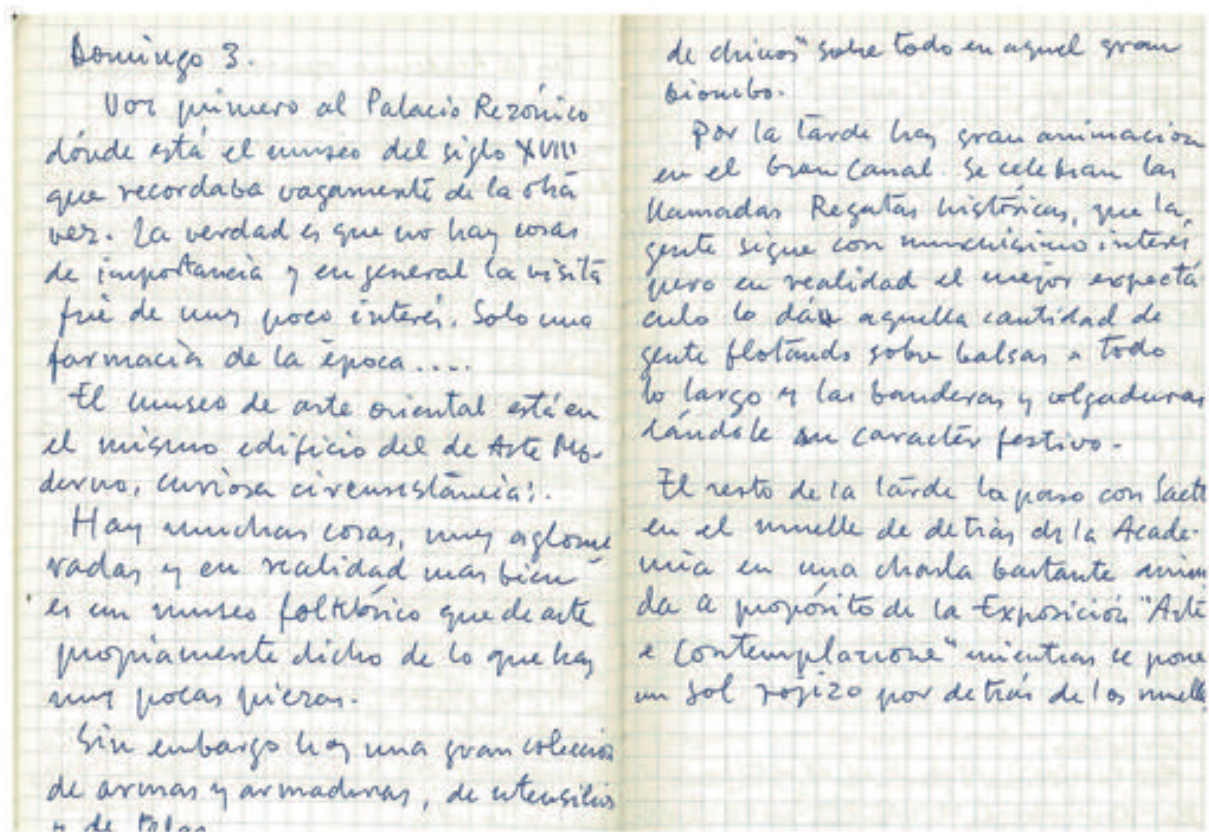 Domingo 3.
Voy primero al Palacio Rezónico
dónde está el museo del siglo XVIII
que recordaba vagamente de la otra
vez. La verdad es que no hay cosas
de importancia y en general la visita
fué de muy poco interés. Solo una
farmacia de la época....
El museo de arte oriental está en
el mismo edificio del de Arte Mo-
derno, curiosa circunstáncia!.
Hay muchas cosas, muy aglome
radas y en realidad mas bien
es un museo folklórico que de arte
propiamente dicho de lo que hay
muy pocas piezas.
Sin embargo hay una gran colección
de armas y armaduras, de utensilios
y de telas
de chinos" sobre todo en aquel gran
biombo.
Por la tarde hay gran animación
en el Gran Canal. Se celebran las
llamadas Regatas históricas, que la
gente sigue con muchísimo interés
pero en realidad el mejor expectá
culo lo dán aquella cantidad de
gente flotando sobre balsas a todo
lo largo y las banderas y colgaduras
dándole su caracter festivo.
El resto de la tarde la paso con Saett
en el muelle de detrás de la Acade-
mia en una charla bastante anim
da a propósito de la Exposición "Arte
e Contemplazione" mientras se pone
un sol rojizo por detrás de los muelle